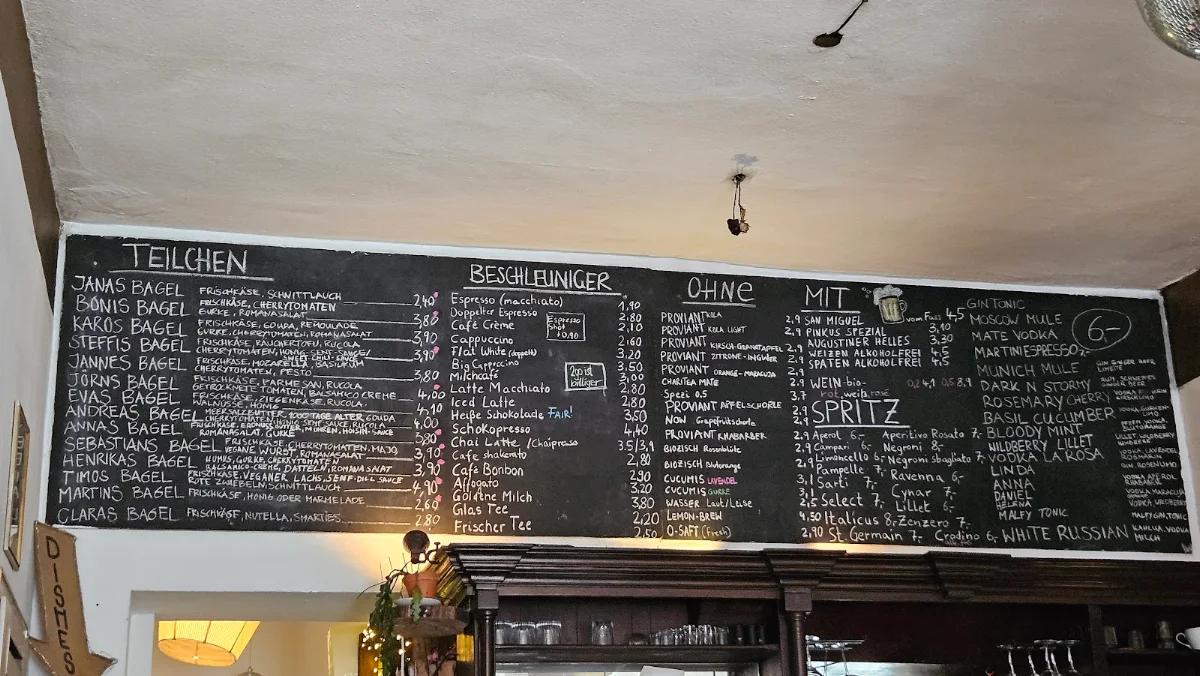 TEILCHEN
JANAS BAGEL FRISCHKÄSE, SCHNITTLAUCH 2,40
BONIS BAGEL FRISCHKÄSE, CHERRYTOMATEN
GURKE, ROMANASALAT 3,80
KAROS BAGEL FRISCHKÄSE, GOUDA, REMOULADE
GURKE, CHERRYTOMATEN, ROMANASALAT 3,90
STEFFIS BAGEL FRISCHKÄSE, RÄUCHERTOFU, RUCOLA
CHERRYTOMATEN, HONIG-SENF-SAUCE 3,90
JANNES BAGEL FRISCHKÄSE, MOZZARELLA, BASILIKUM
CHERRYTOMATEN, PESTO 3,80
JÖRNS BAGEL FRISCHKÄSE, PARMESAN, RUCOLA
GETROCKNETE TOMATEN, BALSAMICO CREME 4,00
EVAS BAGEL FRISCHKÄSE, ZIEGENKÄSE, RUCOLA
WALNUSSE, HONIG 4,10
ANDREAS BAGEL MEERSALZBUTTER, 1000 TAGE ALTER GOUDA
CHERRYTOMATEN, HONIG SENF SAUCE, RUCOLA 4,00
ANNAS BAGEL FRISCHKÄSE, ERDNUSSBUTTER, MÖHREN, HOISIN-SAUCE
ROMANASALAT, GURKE 3,80
SEBASTIANS BAGEL FRISCHKÄSE, CHERRYTOMATEN, MAJO
VEGANE WURST, ROMANASALAT 3,90
HENRIKAS BAGEL HUMUS, GURKE, CHERRYTOMATEN
BALSAMICO-CREME, DATTELN, ROMANASALAT 3,90
TIMOS BAGEL FRISCHKÄSE, VEGANER LACHS, SENF DILL SAUCE
ROTE ZWIEBELN, SCHNITTLAUCH 4,90
MARTINS BAGEL FRISCHKÄSE, HONIG ODER MARMELADE 2,60
CLARAS BAGEL FRISCHKÄSE, NUTELLA, SMARTIES 2,80
BESCHLEUNIGER
Espresso (macchiato) 1,90
Doppelter Espresso 2,80
Café Crème 2,10
Cappuccino 2,60
Flat White (doppelt) 3,20
Big Cappuccino 3,50
Milchcafé 3,00
Latte Macchiato 2,80
Iced Latte 2,80
Heiße Schokolade FAIR! 3,50
Schokopresso 4,40
Chai Latte / Chaipresso 3,5/3,9
Café shakerato 2,80
Café Bonbon
Affogato 2,90
Goldene Milch 3,20
Glas Tee 3,80
Frischer Tee 2,20
2,50
Espresso
Shot
+0,90
billiger
OHNE
PROVIANT KOLA 2,9
PROVIANT KOLA LIGHT 2,9
PROVIANT KIRSCH-GRANATAPFEL 2,9
PROVIANT ZITRONE-INGWER 2,9
PROVIANT ORANGE-MARACUJA 2,9
CHARITEA MATE
Spezi 0.5
PROVIANT APFELSCHORLE
NOW Grapefruitschorle 2,9
PROVIANT RHABARBER 2,9
BIOZISCH Rosenblüte
BIOZISCH Blutorange
CUCUMIS LAVENDEL
CUCUMIS GURKE
WASSER Laut/Leise
LEMON-BREW 4,50
O-SAFT (Fresh) 2,90
MIT
SAN MIGUEL vom Fass 4,5
PINKUS SPEZIAL 3,10
AUGUSTINER HELLES 3,30
WEIZEN ALKOHOLFREI
SPATEN ALKOHOLFREI
WEIN -bio-
rot, weiß, rosé
SPRITZ
Aperol 6,- Aperitivo Rosato 7,-
Campari 6,- Negroni 8,-
Limoncello 6, Negroni Sbagliato 7,-
Pampelle 7,- Ravenna 6,-
Sarti 7,- Cynar 7,-
Select 7, Lillet 6,-
Italicus 8, Zenzero 7,-
St. Germain 7,- Crodino 6,-
GIN TONIC
MOSCOW MULE
MATE VODKA
MARTINIESPRESSO
MUNICH MULE
DARK N STORMY
ROSEMARY CHERRY
BASIL CUCUMBER
BLOODY MINT
WILDBERRY LILLET
VODKA LA ROSA
LINDA
ANNA
DANIEL
HELENA
MALFY TONIC
WHITE RUSSIAN
6,-
MALFY GIN, TONIC
KAHLUA, VODKA
MILCH
DISHES